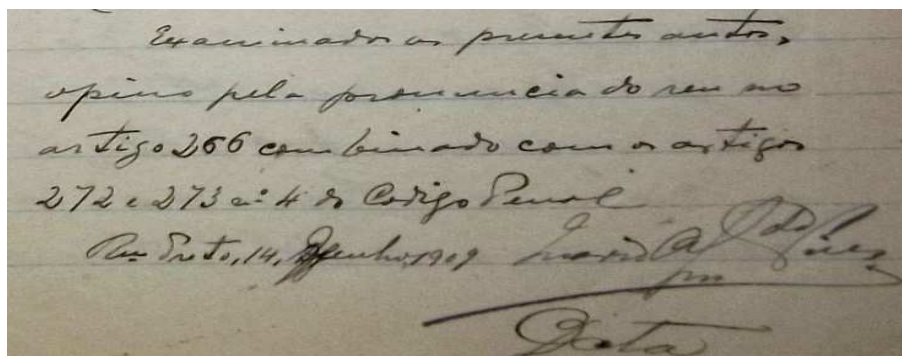 Examinados os presentes autos,
opino pela pronuncia do reu no
artigo 266 combinado com os artigos
272 e 273 nº 4 do Codigo Penal
Rio Preto, 14, Junho, 1909
Data